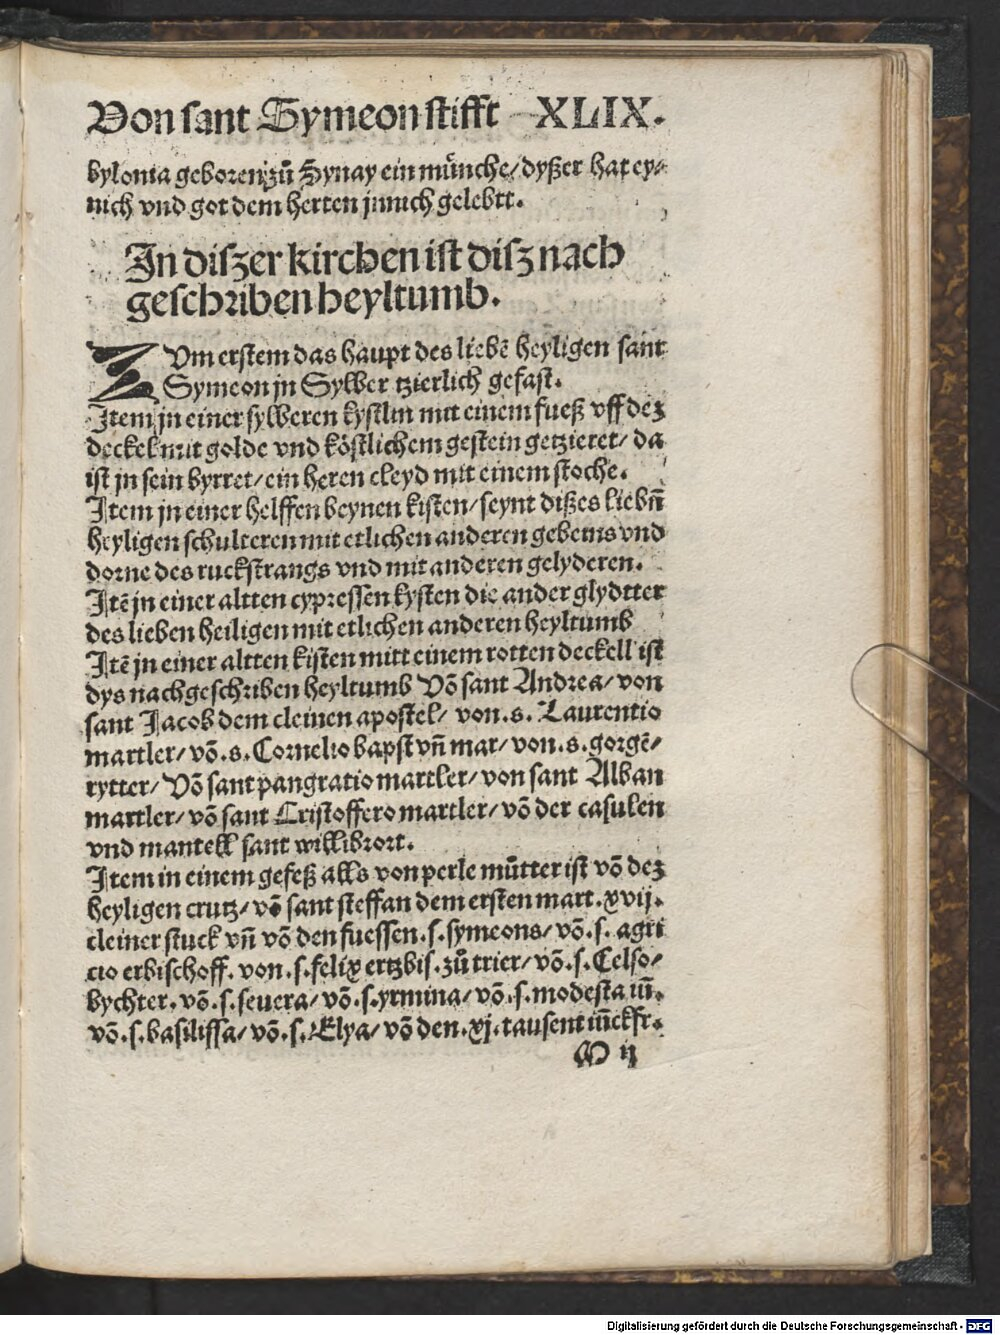 Von sant Symeon stifft XLIX.
bylonia geboren/zů Synay ein münche/dyßer hat ey⸗
nich vnd got dem herren jnnich gelebtt.
In diszer kirchen ist disz nach
geschriben heyltumb.
ZVm erstem das haupt des liebē heyligen sant
Symeon jn Sylber tzierlich gefast.
Item jn einer sylberen kystlin mit einem fueß vff dez
deckel mit golde vnd köstlichem gestein getzieret/ da
ist jn sein byrret/ein heren cleyd mit einem stoche.
Item jn einer helffen beynen kisten/seynt dißes liebñ
heyligen schulteren mit etlichen anderen gebeins vnd
dorne des ruckstrangs vnd mit anderen gelyderen.
Itē jn einer altten cypressen kysten die ander glydtter
des lieben heiligen mit etlichen anderen heyltumb
Itē jn einer altten kisten mitt einem rotten deckell ist
dys nachgeschriben heyltumb Vō sant Andrea/ von
sant Jacob dem cleinen apostel/ von .s. Laurentio
martler/ vō .s. Cornelio bapst vñ mar/ von .s. gorgē/
rytter/ Vō sant pangratio martler/ von sant Alban
martler/ vō sant Cristoffero martler/ vō der casulen
vnd mantell sant willibrort.
Item in einem gefeß alls von perle můtter ist vō dez
heyligen crutz/ vō sant steffan dem ersten mart. xvij.
cleiner stuck vñ vō den fuessen .s. symeons/ vō .s. agri
cio erbischoff. von .s. felix ertzbis. zů trier/ vō .s. Celso/
bychter. vō .s. seuera/ vō .s. yrmina/ vō .s. modesta iū.
vō .s. basilissa/ vō .s. Elya/ vō den .xj. tausent iūckfr.
M ij
Digitalisierung gefördert durch die Deutsche Forschungsgemeinschaft - DFG